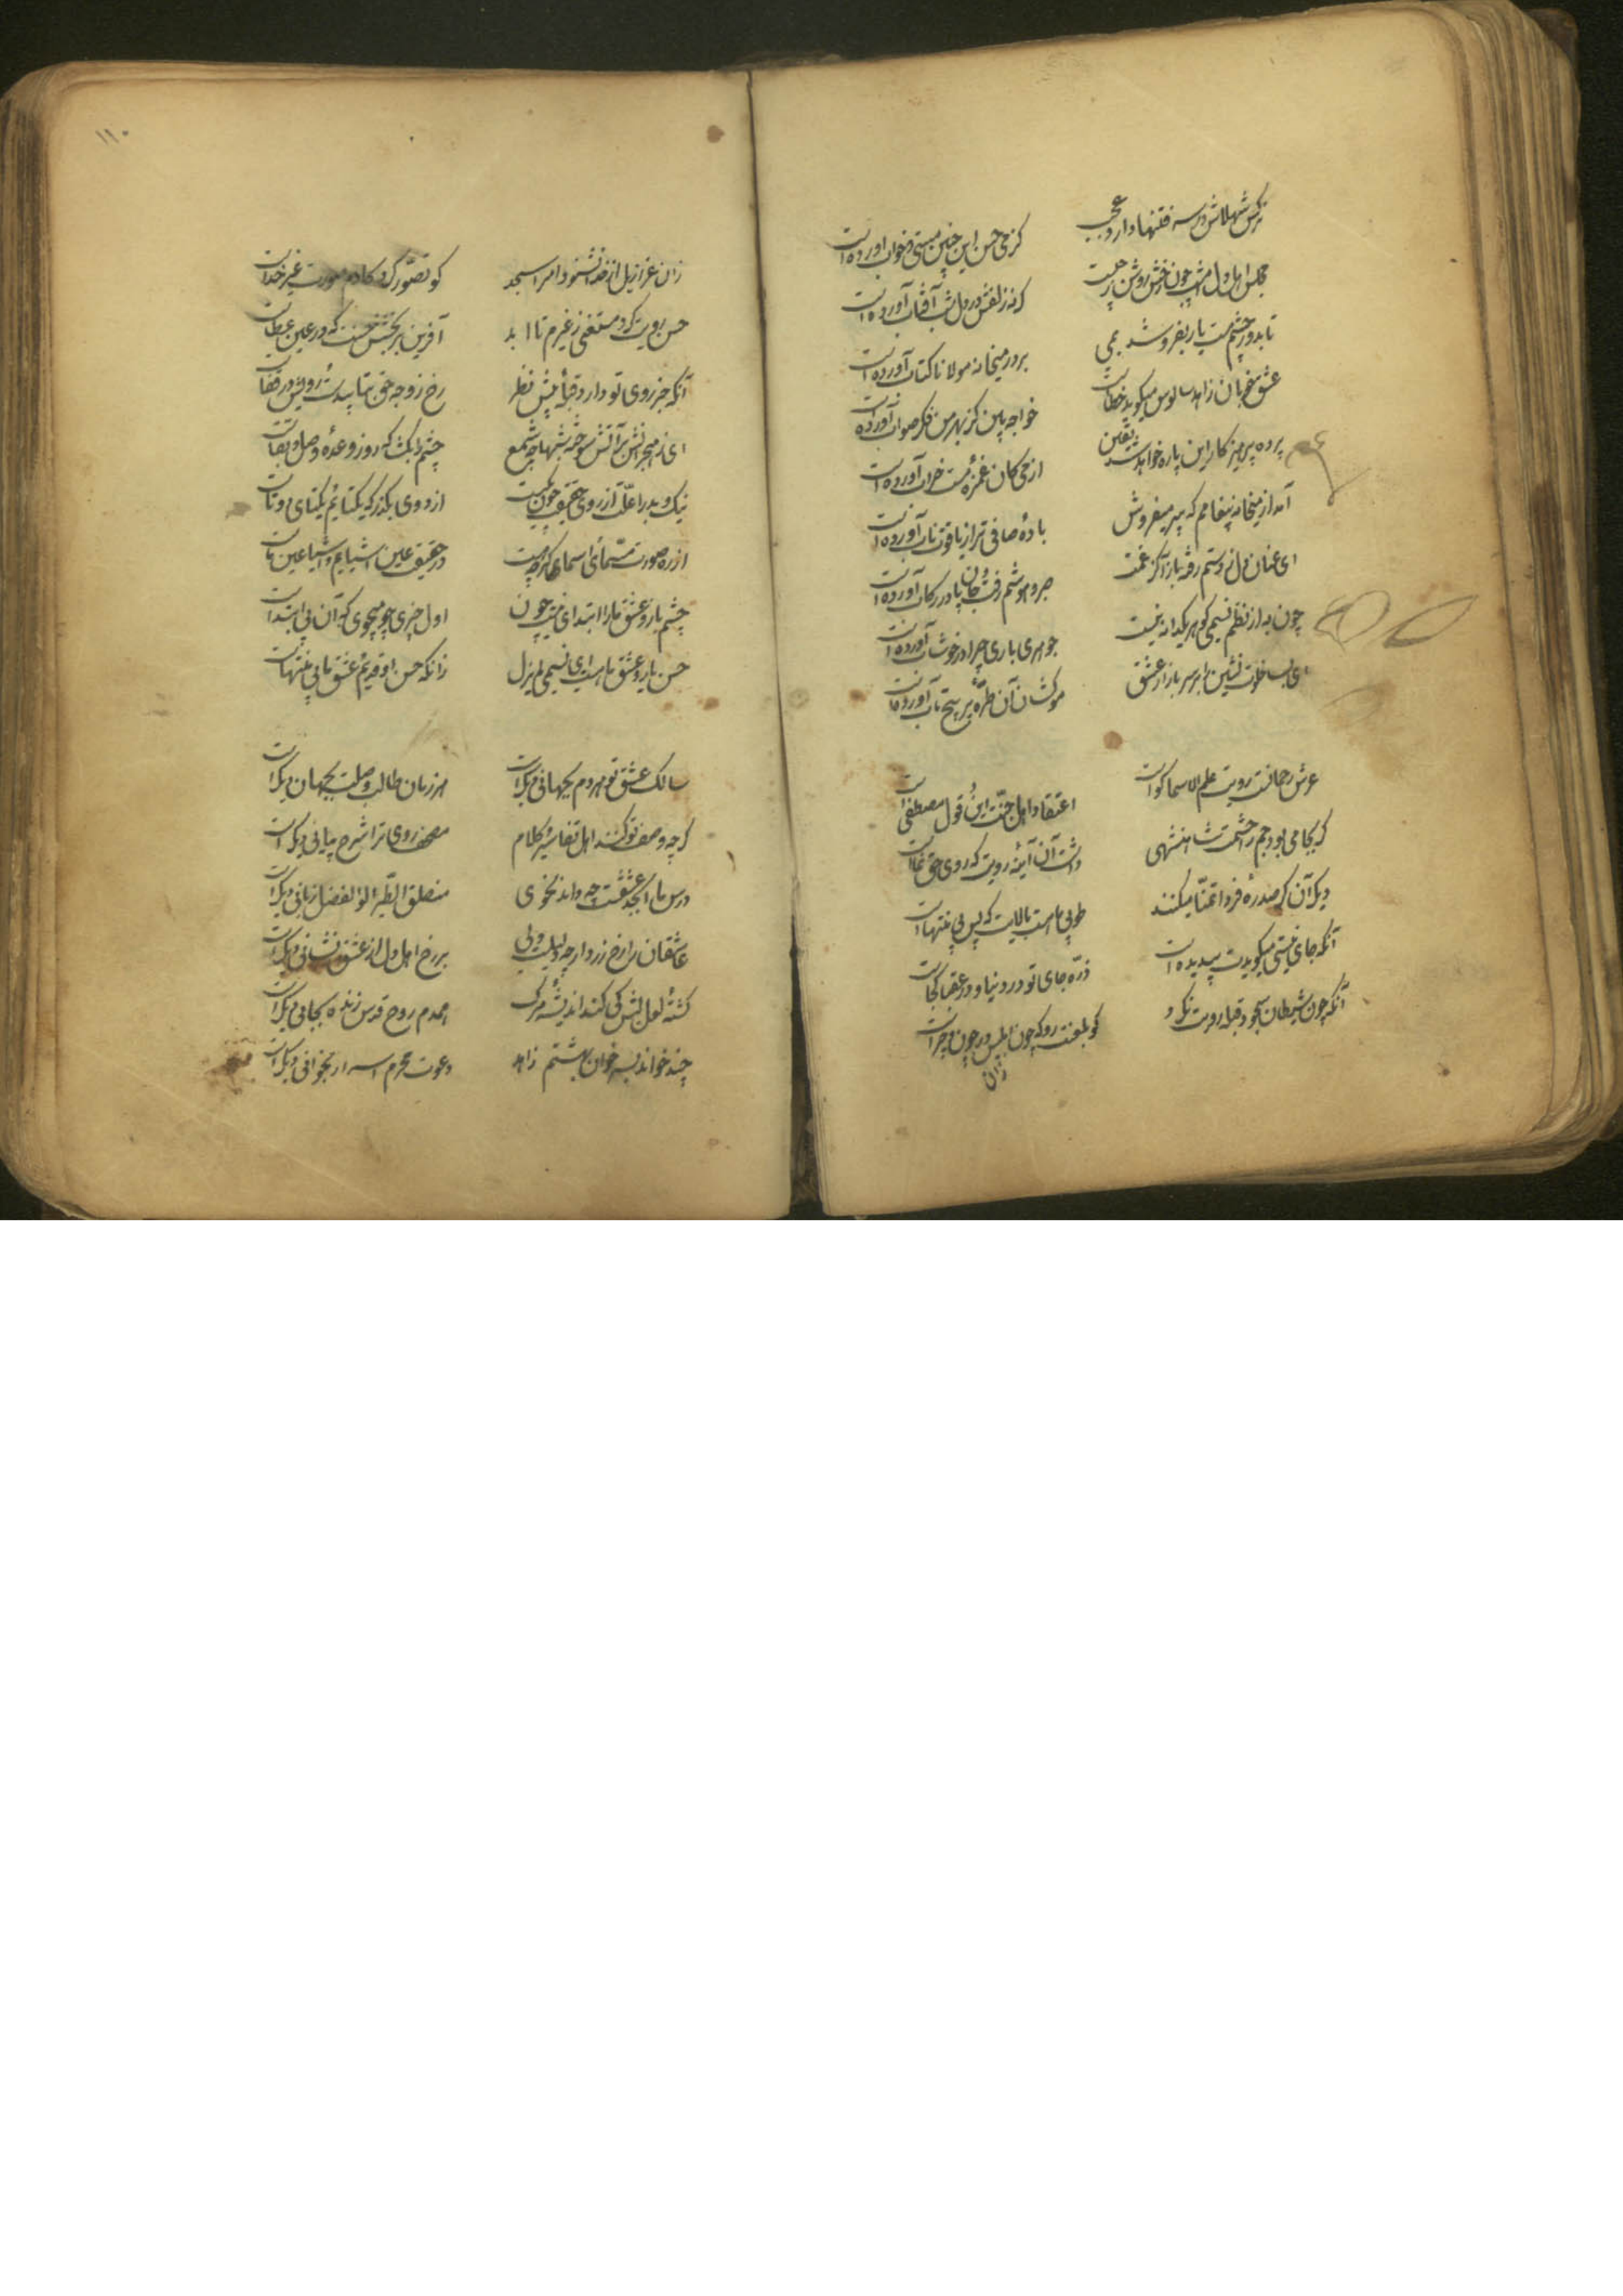 نرکس شهلاش در سر فتنها دارد عجب
کز می حسن این چنین مستی و خواب آورده است
مجلس اهل دل امشب چون رخش روشن ز چیست
کرنه زلفش در دل شب آفتاب آورده است
تا بدور چشم مست یار بفروشد بمی
بر در میخانه مولانا کتاب آورده است
عشق خوبان زاهد سالوس میکوید خطاست
خواجه بین کز بهر من فکر صواب آورده است
پرده پرهیزکار این پاره خواهد شد یقین
از می کان غمزه مست خراب آورده است
آمد از میخانه پیغامم که پیر میفروش
باده صافی تر از یاقوت ناب آورده است
ای عنان دل ز دستم رفته باز آ کز غمت
صبر و هوشم رفت و جان پا در رکاب آورده است
چون به از نظم نسیمی کوهر یکدانه نیست
جوهری باری چرا در خوشاب آورده است
ای بسا خلوت نشین را بر سر بازار عشق
موکشان آن طره پر پیچ و تاب آورده است
عرش رحمانست رویت علم الاسما کواست
اعتقاد اهل جنت این و قول مصطفی است
کر بجامی بود جم را حشمت شاهنشهی
داشت آن آئینه رویت که روی حق نماست
دیکر آن کز صدره فردا تمنا میکنند
طوبی ما هست بالایت که بس بی منتهاست
آنکه جای نیستی میکویدت پیدیده است
ذره جای تو در دنیا و در عقبا کجاست
آنکه چون شیطان سجود قبله رویت نکرد
کو بلعنت رو که چون ابلیس در چون و چراست
زان
۱۱۰
زان عزازیل از خدا نشنود امر اسجد
کو تصور کرد کادم صورت غیر خداست
حسن رویت کرد مستغنی ز غیرم تا ابد
آفرین بر بخشش حسنت که در عین عطاست
آنکه جز روی تو دارد قبله پیش نظر
رخ ز وجه حق بتابیدست و رویش در قفاست
ای ز هجرانش بر آتش سوخته شبها چو شمع
چشم دل بکشا که روز وعده وصل و بقاست
نیک و بد را علت از روی حقیقت چون یکیست
از دوی بکذر که یکتائیم یکتای دوتاست
از ره صورت مسمای اسمای کرچه هست
در حقیقت عین اشیاییم و اشیا عین ماست
چشم یار و عشق ما را ابتدای نیست چون
اول چیزی چو میجوی که آن بی ابتداست
حسن یار و عشق ما هست ای نسیمی لم یزل
زانکه حسن او قدیم و عشق ما بی منتهاست
سالک عشق تو هر دم بجهانی دیکرست
هر زمان طالب وصلت بجهان دیکرست
کرچه وصف تو کنند اهل تفاسیر کلام
مصحف روی ترا شرح و بیانی دیکرست
درس ما ابجد عشقست چه داند نحوی
منطق الطیر اولو الفضل زبانی دیکرست
عاشقان را رخ زرد ارچه دلیلست ولی
بر رخ اهل دل از عشق نشانی دیکرست
کشته لعل لبش کی کند اندیشه مرک
همدم روح قدس زنده بجانی دیکرست
چند خواند بسر خوان بهشتم زاهد
دعوت محرم اسرار بخوانی دیکرست